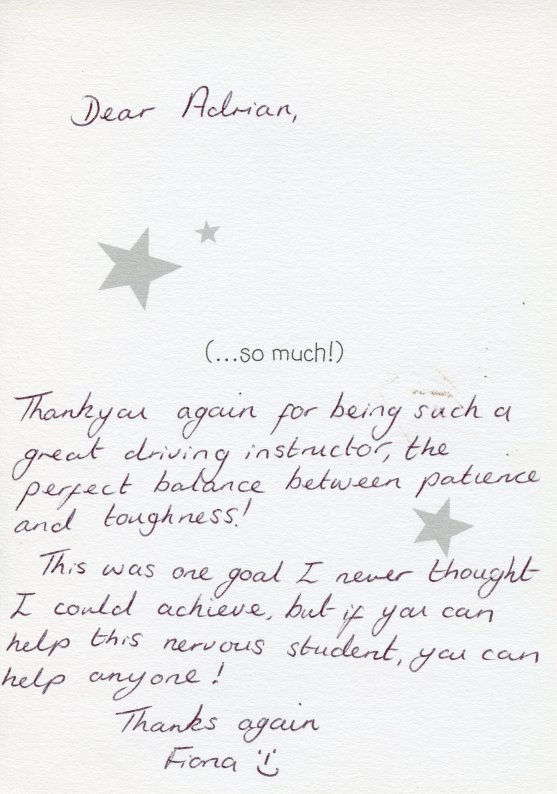 Dear Adrian,
(...so much!)
Thankyou again for being such a
great driving instructor, the
perfect balance between patience
and toughness!
This was one goal I never thought
I could achieve, but if you can
help this nervous student, you can
help anyone!
Thanks again
Fiona